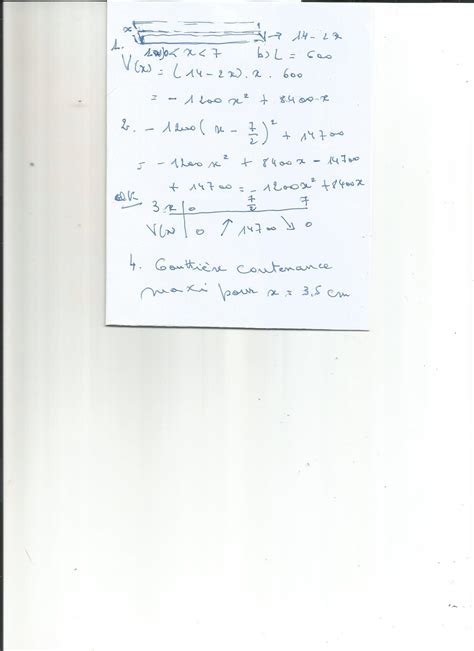 x → 14-2x
1. 0 < x < 7 b) L = 600
V(x) = (14-2x).x.600
= -1200x² + 8400x
2. -1200(x - 7/2)² + 14700
= -1200x² + 8400x - 14700
+ 14700 = -1200x² + 8400x
OK
3. x | 0 7/2 7
V(x) | 0 ↗ 14700 ↘ 0
4. Gouttière contenance
maxi pour x = 3,5 cm